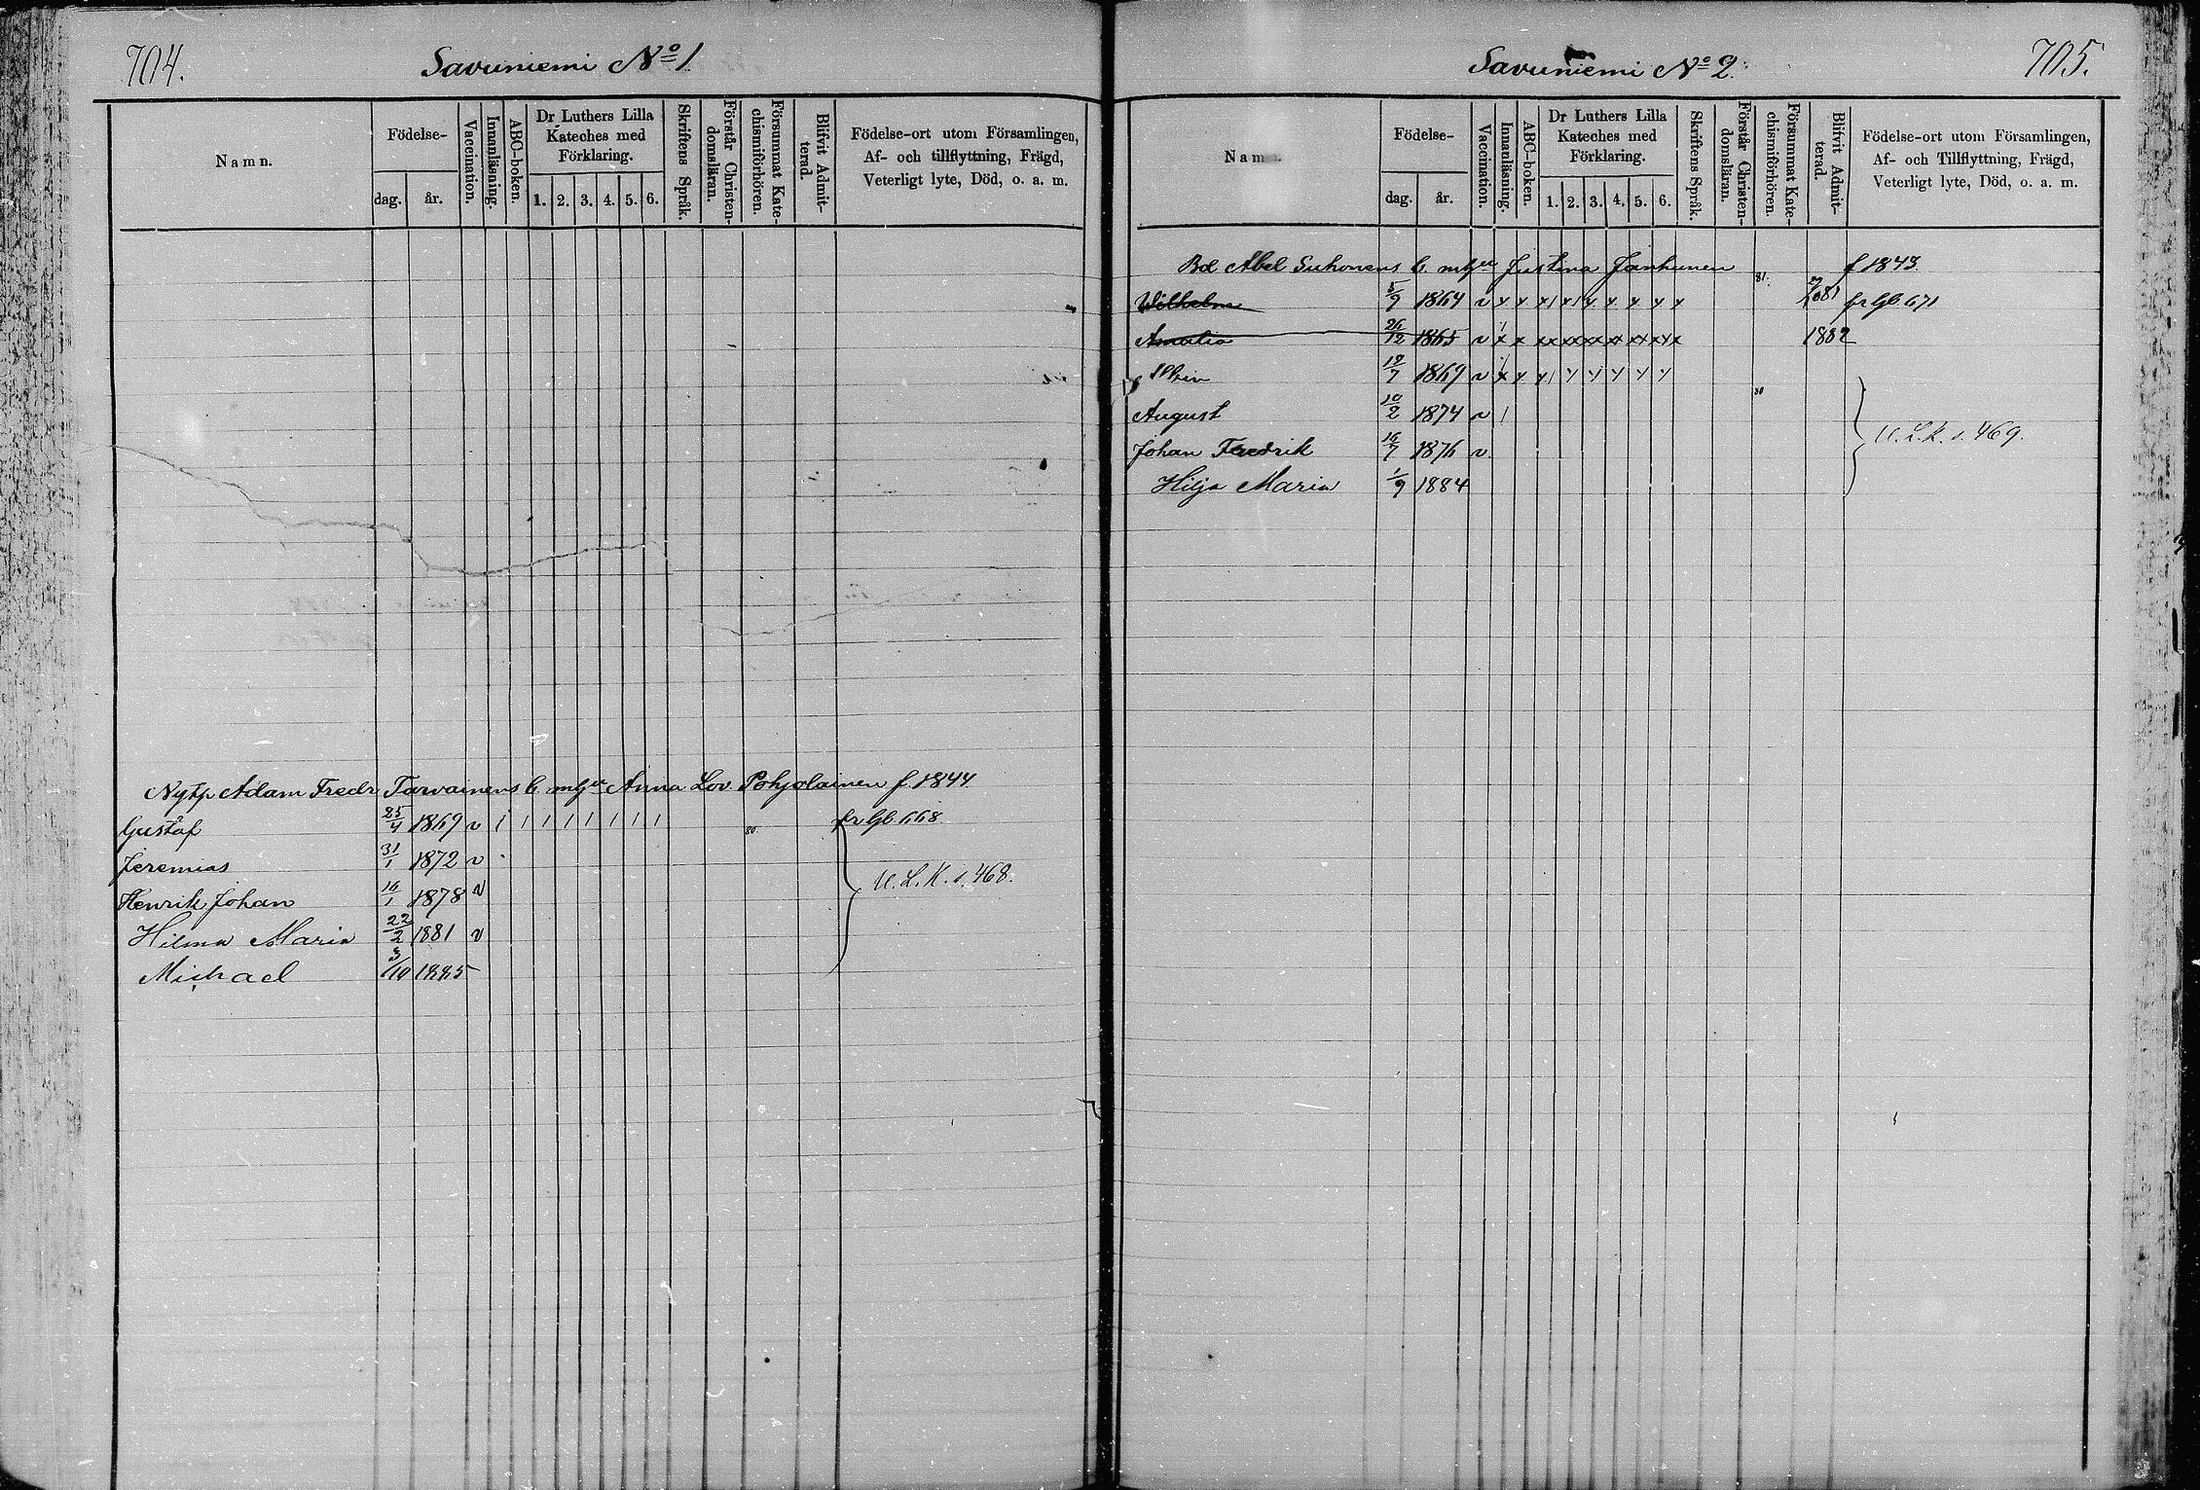 704.
Savuniemi No 1
Namn.
Födelse-
dag.
år.
Vaccination.
Innanläsning.
ABC-boken.
Dr Luthers Lilla
Kateches med
Förklaring.
1. 2. 3. 4. 5. 6.
Skriftens Språk.
Förstår Christen-
domsläran.
Försummat Kate-
chismiförhören.
Blifvit Admit-
terad.
Födelse-ort utom Församlingen,
Af- och tillflyttning, Frägd,
Veterligt lyte, Död, o. a. m.
Nybp Adam Fredr Tarvainens b. m hu Anna Lov Pohjolainen f. 1844
Gustaf 25/4 1869 v 1 1 1 1 1 1 1 1 80. fr Gb. 668.
Jeremias 31/1 1872 v
U. L. K. s. 468.
Henrik Johan 16/1 1878 v
Hilma Maria 22/2 1881 v
Michael 3/10 1885
705.
Savuniemi No 2.
Namn.
Födelse-
dag.
år.
Vaccination.
Innanläsning.
ABC-boken.
Dr Luthers Lilla
Kateches med
Förklaring.
1. 2. 3. 4. 5. 6.
Skriftens Språk.
Förstår Christen-
domsläran.
Försummat Kate-
chismiförhören.
Blifvit Admit-
terad.
Födelse-ort utom Församlingen,
Af- och Tillflyttning, Frägd,
Veterligt lyte, Död, o. a. m.
Bd Abel Suhonens b. m hu Justina Janhunen f 1843.
Wilhelm 5/9 1864 v x x x x x x x x x 81. 1881 fr Gb. 671
Amalia 26/12 1865 v x x xx xx xx xx xx xx x 1882
Albin 12/7 1869 v x x x x x x x x 80
August 10/2 1874 v 1
U. L. K. s. 469.
Johan Fredrik 16/7 1876 v
Hilja Maria 1/9 1884